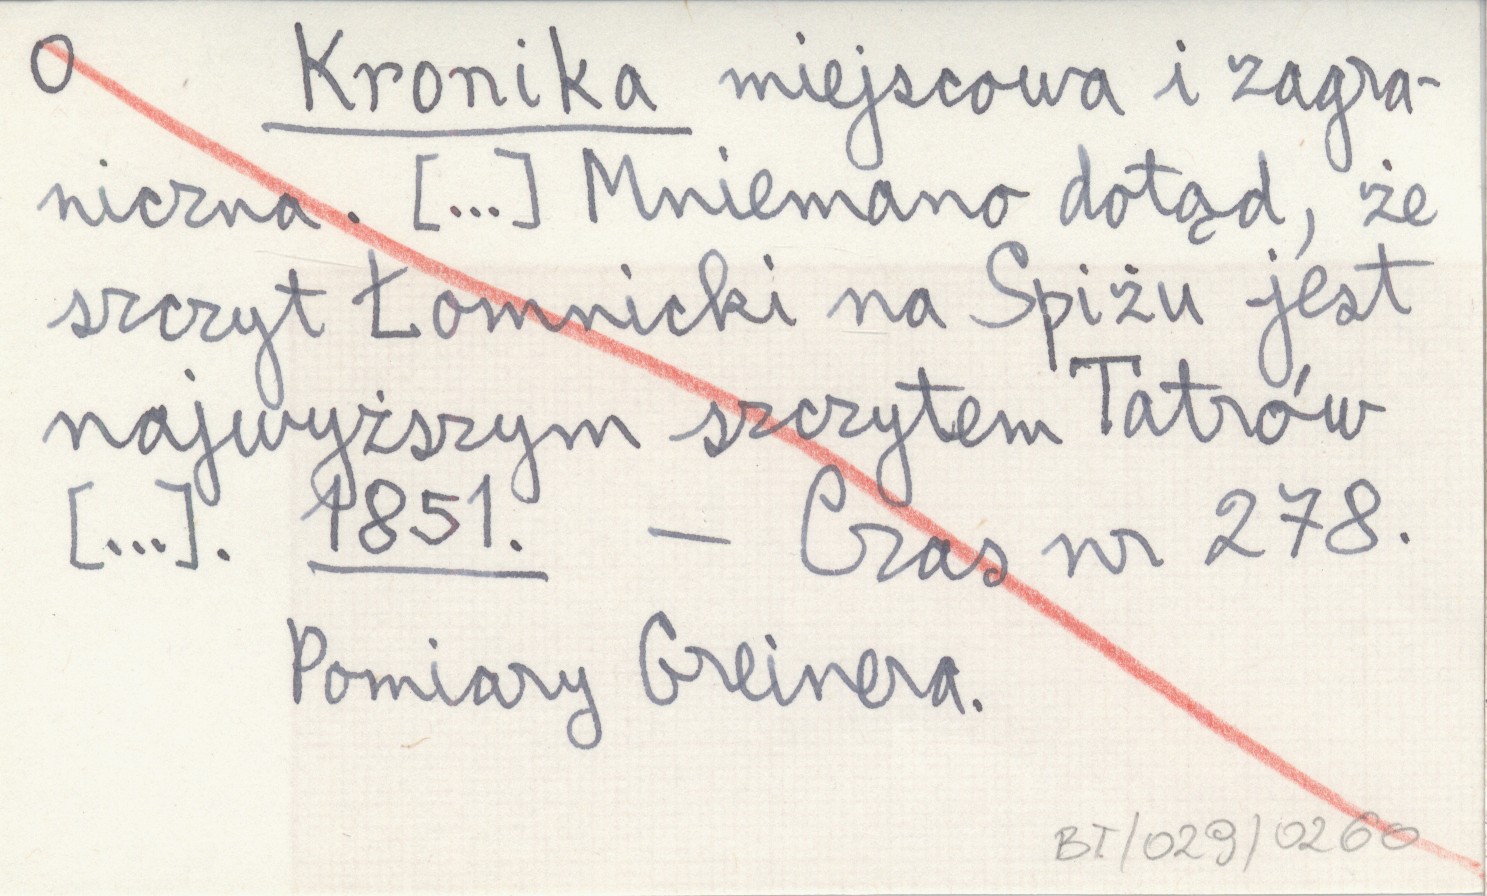 O Kronika miejscowa i zagra-
niczna. [...] Mniemano dotąd, że
szczyt Łomnicki na Spiżu jest
najwyższym szczytem Tatrów
[...]. 1851. — Czas nr 278.
Pomiary Greinera.
BT/029/0260